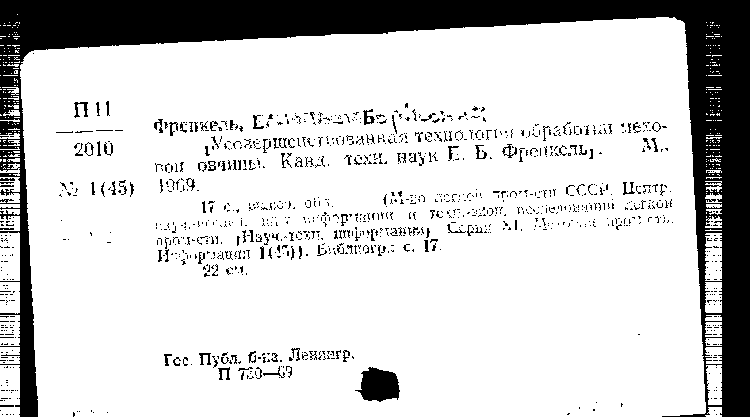 П 11
2010
№ 1(45)
Френкель,
[Усовершенствованная технология обработки мехо-
вой овчины. Канд. техн. наук Е. Б. Френкель]. М.,
1969.
17 с., включ. обл. (М-во легкой пром-сти СССР. Центр.
информации и легкой
пром-сти. [Науч.-техн. информация]. Серия XI. Меховая пром-сть.
Информация 1(45)). Библиогр.: с. 17.
22 см.
Гос. Публ. б-ка. Ленингр.
П 730—69